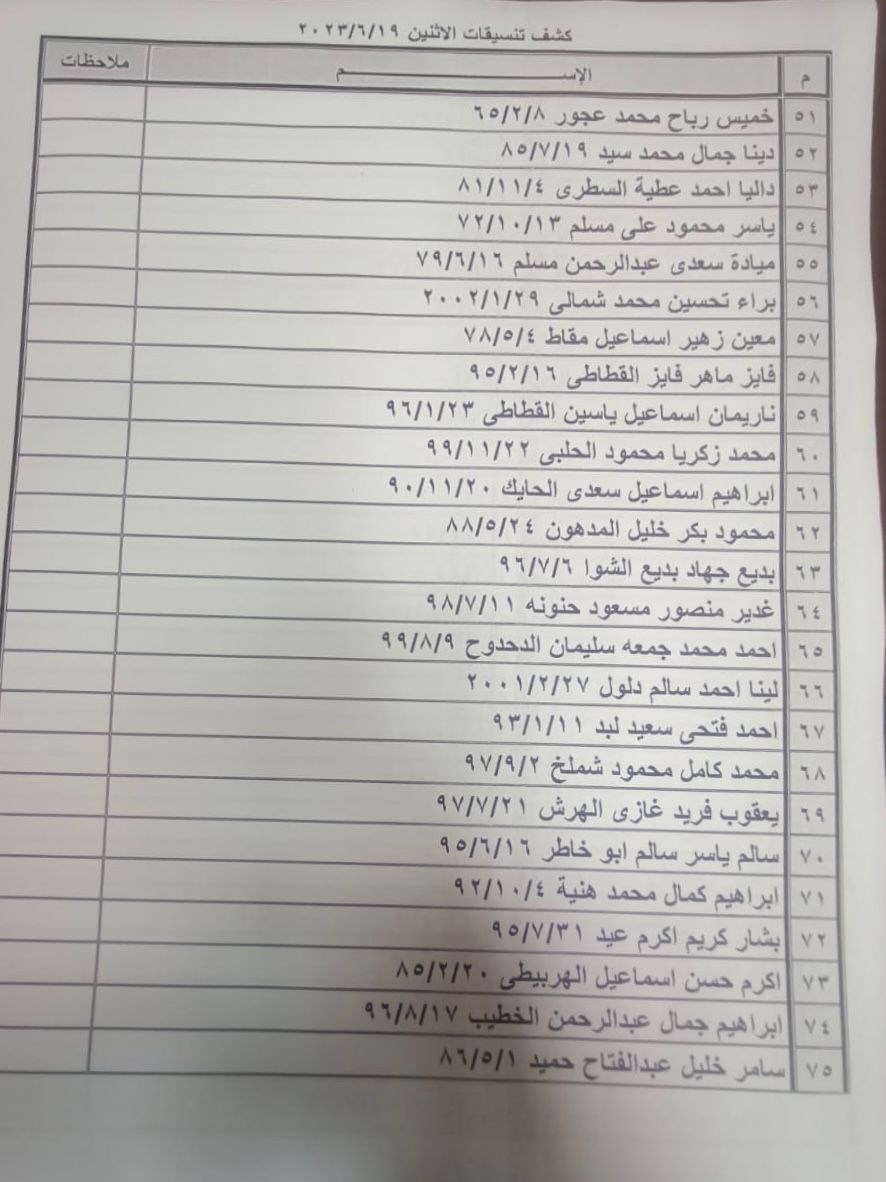 كشف تنسيقات الاثنين ٢٠٢٣/٦/١٩
م الإســـــــــم ملاحظات
٥١ خميس رباح محمد عجور ٦٥/٢/٨
٥٢ دينا جمال محمد سيد ٨٥/٧/١٩
٥٣ داليا احمد عطية السطرى ٨١/١١/٤
٥٤ ياسر محمود على مسلم ٧٢/١٠/١٣
٥٥ ميادة سعدى عبدالرحمن مسلم ٧٩/٦/١٦
٥٦ براء تحسين محمد شمالى ٢٠٠٢/١/٢٩
٥٧ معين زهير اسماعيل مقاط ٧٨/٥/٤
٥٨ فايز ماهر فايز القطاطى ٩٥/٢/١٦
٥٩ ناريمان اسماعيل ياسين القطاطى ٩٦/١/٢٣
٦٠ محمد زكريا محمود الحلبى ٩٩/١١/٢٢
٦١ ابراهيم اسماعيل سعدى الحايك ٩٠/١١/٢٠
٦٢ محمود بكر خليل المدهون ٨٨/٥/٢٤
٦٣ بديع جهاد بديع الشوا ٩٦/٧/٦
٦٤ غدير منصور مسعود حنونه ٩٨/٧/١١
٦٥ احمد محمد جمعه سليمان الدحدوح ٩٩/٨/٩
٦٦ لينا احمد سالم دلول ٢٠٠١/٢/٢٧
٦٧ احمد فتحى سعيد لبد ٩٣/١/١١
٦٨ محمد كامل محمود شملخ ٩٧/٩/٢
٦٩ يعقوب فريد غازى الهرش ٩٧/٧/٢١
٧٠ سالم ياسر سالم ابو خاطر ٩٥/٦/١٦
٧١ ابراهيم كمال محمد هنية ٩٢/١٠/٤
٧٢ بشار كريم اكرم عيد ٩٥/٧/٣١
٧٣ اكرم حسن اسماعيل الهربيطى ٨٥/٢/٢٠
٧٤ ابراهيم جمال عبدالرحمن الخطيب ٩٦/٨/١٧
٧٥ سامر خليل عبدالفتاح حميد ٨٦/٥/١